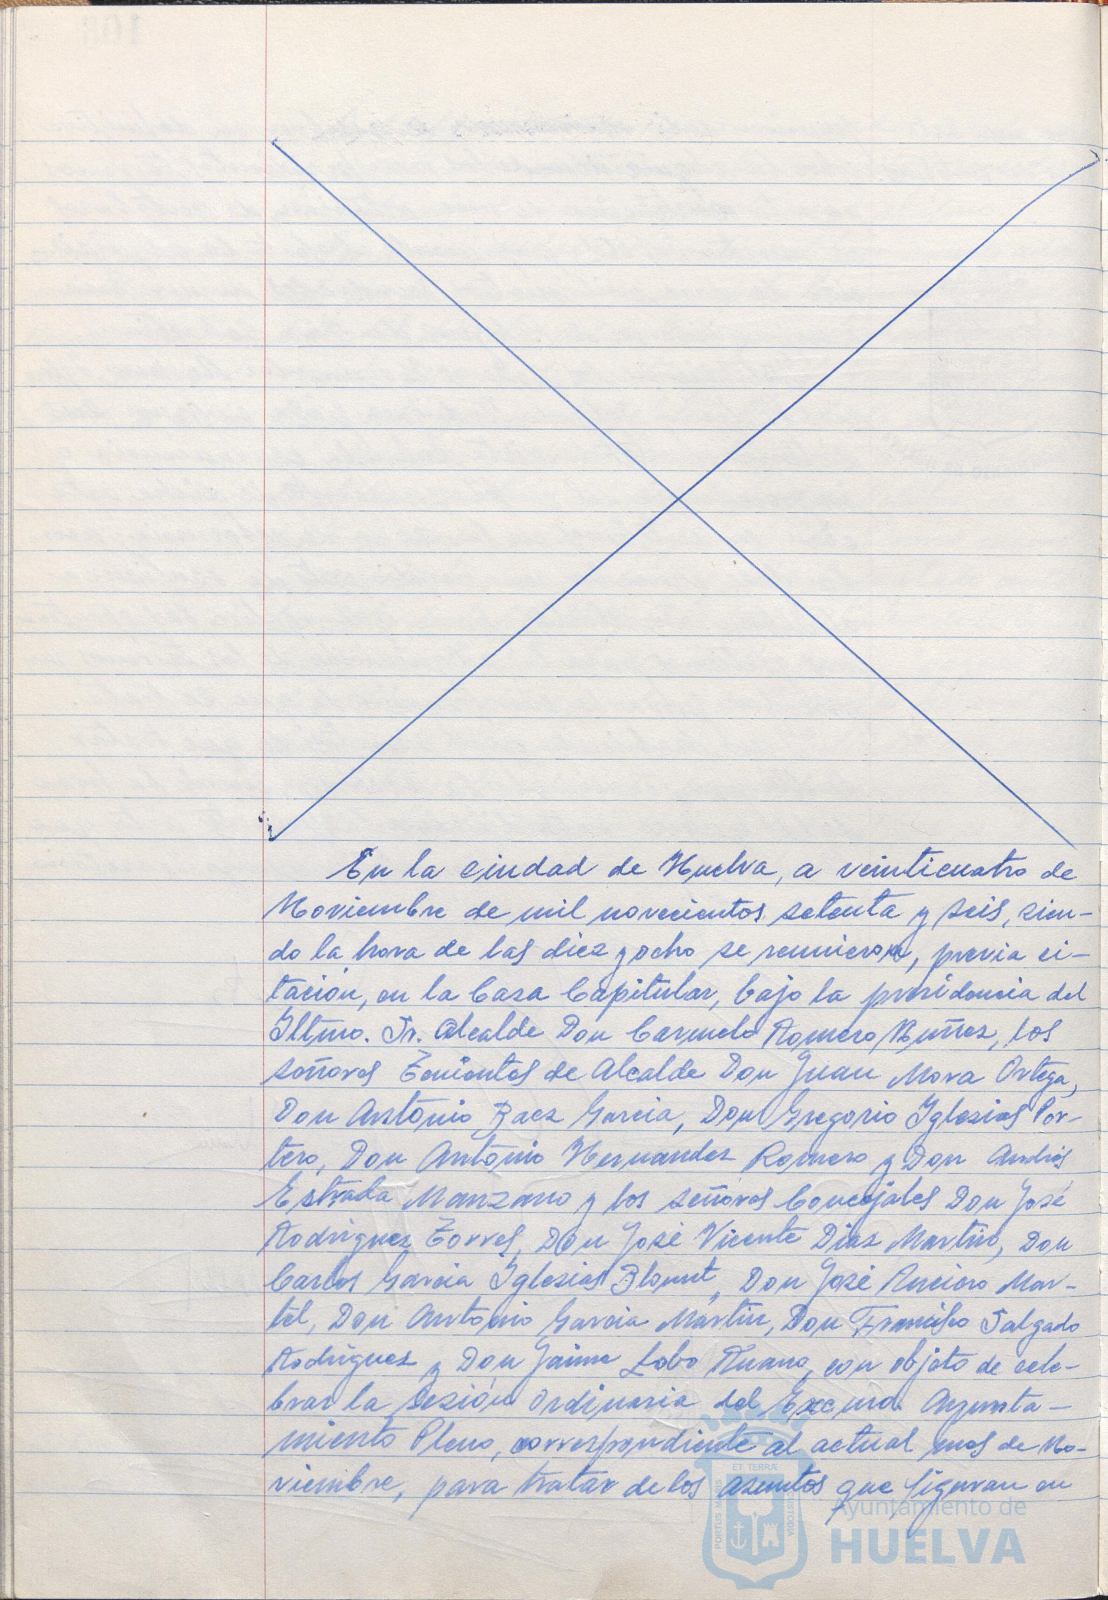 En la ciudad de Huelva, a veinticuatro de
Noviembre de mil novecientos setenta y seis, sien-
do la hora de las diez y ocho se reunieron, previa ci-
tación, en la Casa Capitular, bajo la presidencia del
Iltmo. Sr. Alcalde Don Carmelo Romero Núñez, los
señores Tenientes de Alcalde Don Juan Mora Ortega,
Don Antonio Baez Garcia, Don Gregorio Iglesias Por-
tero, Don Antonio Hernandez Romero y Don Andrés
Estrada Manzano y los señores Concejales Don José
Rodriguez Torres, Don José Vicente Diaz Martin, Don
Carlos Garcia Iglesias Blount, Don José Anciero Mar-
tel, Don Antonio Garcia Martin, Don Francisco Salgado
Rodriguez y Don Jaime Lobo Ruano, con objeto de cele-
brar la Sesión Ordinaria del Excmo. Ayunta-
miento Pleno, correspondiente al actual mes de No-
viembre, para tratar de los asuntos que figuran en
ET TERRÆ
PORTUS MARIS
CUSTODIA
Ayuntamiento de
HUELVA